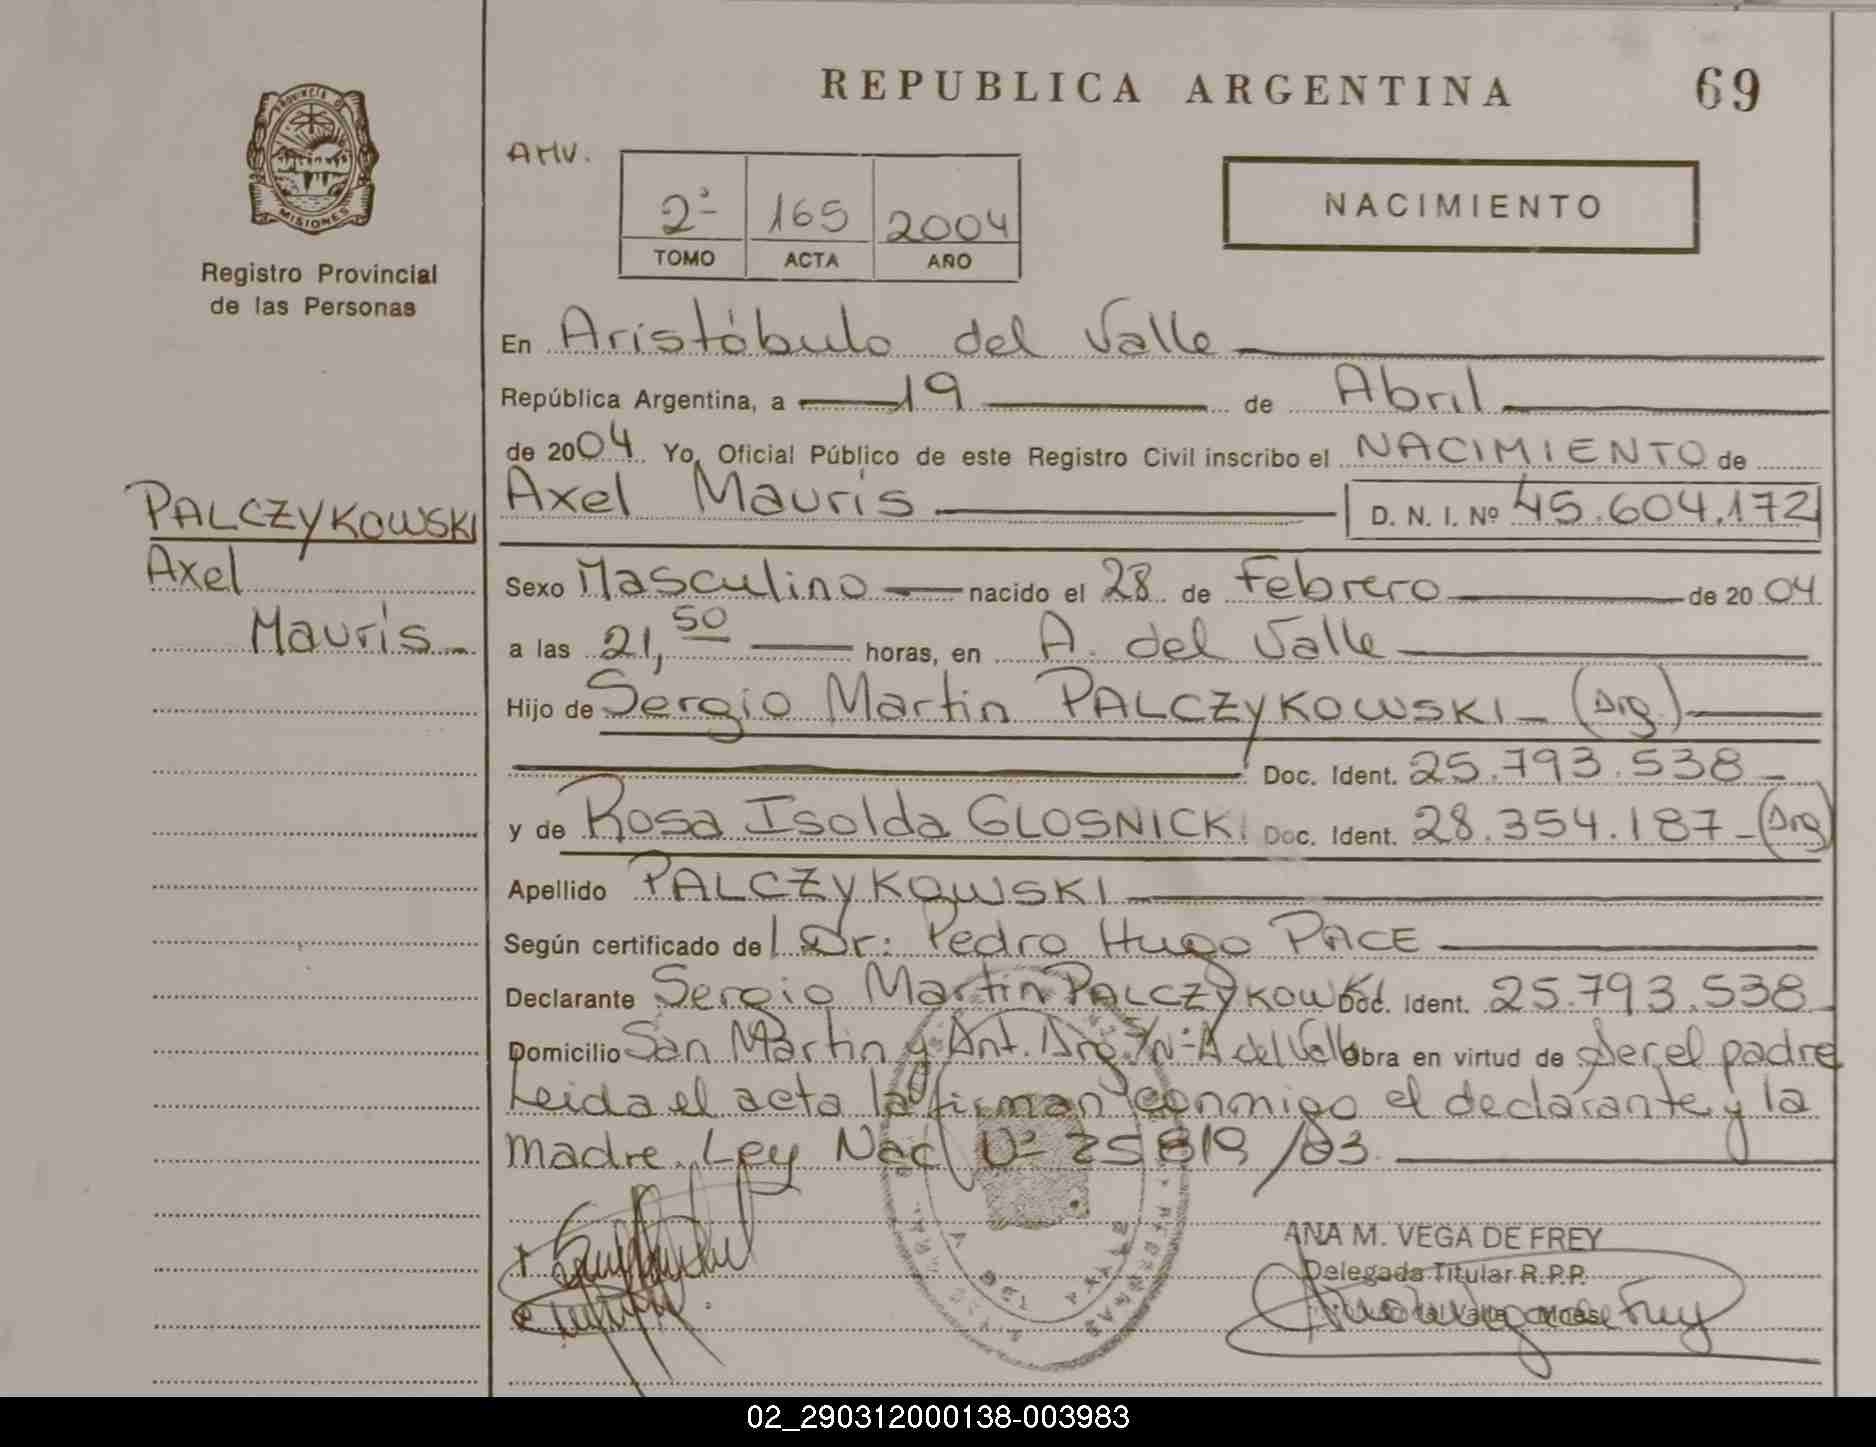 REPUBLICA ARGENTINA
69
PROVINCIA DE
MISIONES
Registro Provincial
de las Personas
AMV.
2ª 165 2004
TOMO ACTA AÑO
NACIMIENTO
En Aristóbulo del Valle
República Argentina, a 19 de Abril
de 2004 Yo, Oficial Público de este Registro Civil inscribo el NACIMIENTO de
Axel Mauris D. N. I. Nº 45.604.172
PALCZYKOWSKI
Axel
Mauris
Sexo Masculino nacido el 28 de Febrero de 2004
a las 21,50 horas, en A. del Valle
Hijo de Sergio Martin PALCZYKOWSKI (Arg.)
Doc. Ident. 25.793.538
y de Rosa Isolda GLOSNICKI Doc. Ident. 28.354.187 (Arg)
Apellido PALCZYKOWSKI
Según certificado del Dr: Pedro Hugo PACE
Declarante Sergio Martin PALCZYKOWKI Doc. Ident. 25.793.538
Domicilio San Martin y Ant. Arg. S/Nº A del Valle Obra en virtud de Ser el padre
Leida el acta la firman conmigo el declarante y la
madre. Ley Nac Nº 25819/03
ANA M. VEGA DE FREY
Delegada Titular R.P.P.
del Valle
02_290312000138-003983